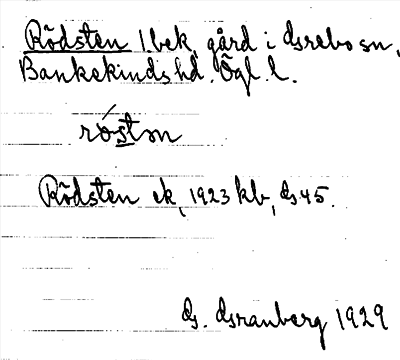 Rödsten 1. bek, gård i Grebo sn,
Bankekinds hd. Ögl. l.
róstn
Rödsten ek, 1923 kb, GS 45.
G. Granberg 1929